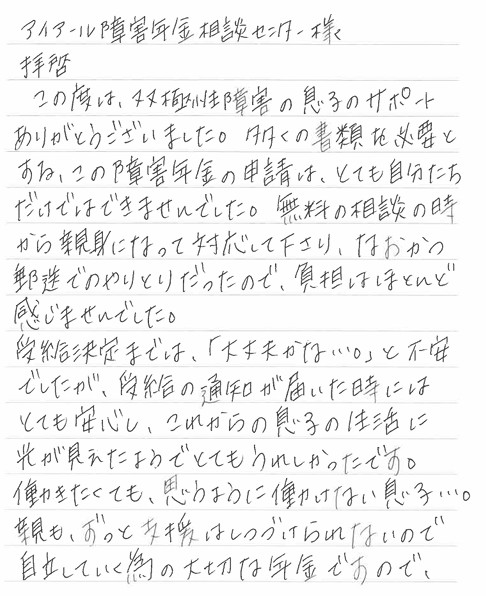 アイアール障害年金相談センター様
拝啓
この度は、双極性障害の息子のサポート
ありがとうございました。多くの書類を必要と
する、この障害年金の申請は、とても自分たち
だけではできませんでした。無料の相談の時
から親身になって対応して下さり、なおかつ
郵送でのやりとりだったので、負担はほとんど
感じませんでした。
受給決定までは、「大丈夫かな…。」と不安
でしたが、受給の通知が届いた時には
とても安心し、これからの息子の生活に
光が見えたようでとてもうれしかったです。
働きたくても、思うように働けない息子…。
親も、ずっと支援はしつづけられないので
自立していく為の大切な年金ですので、